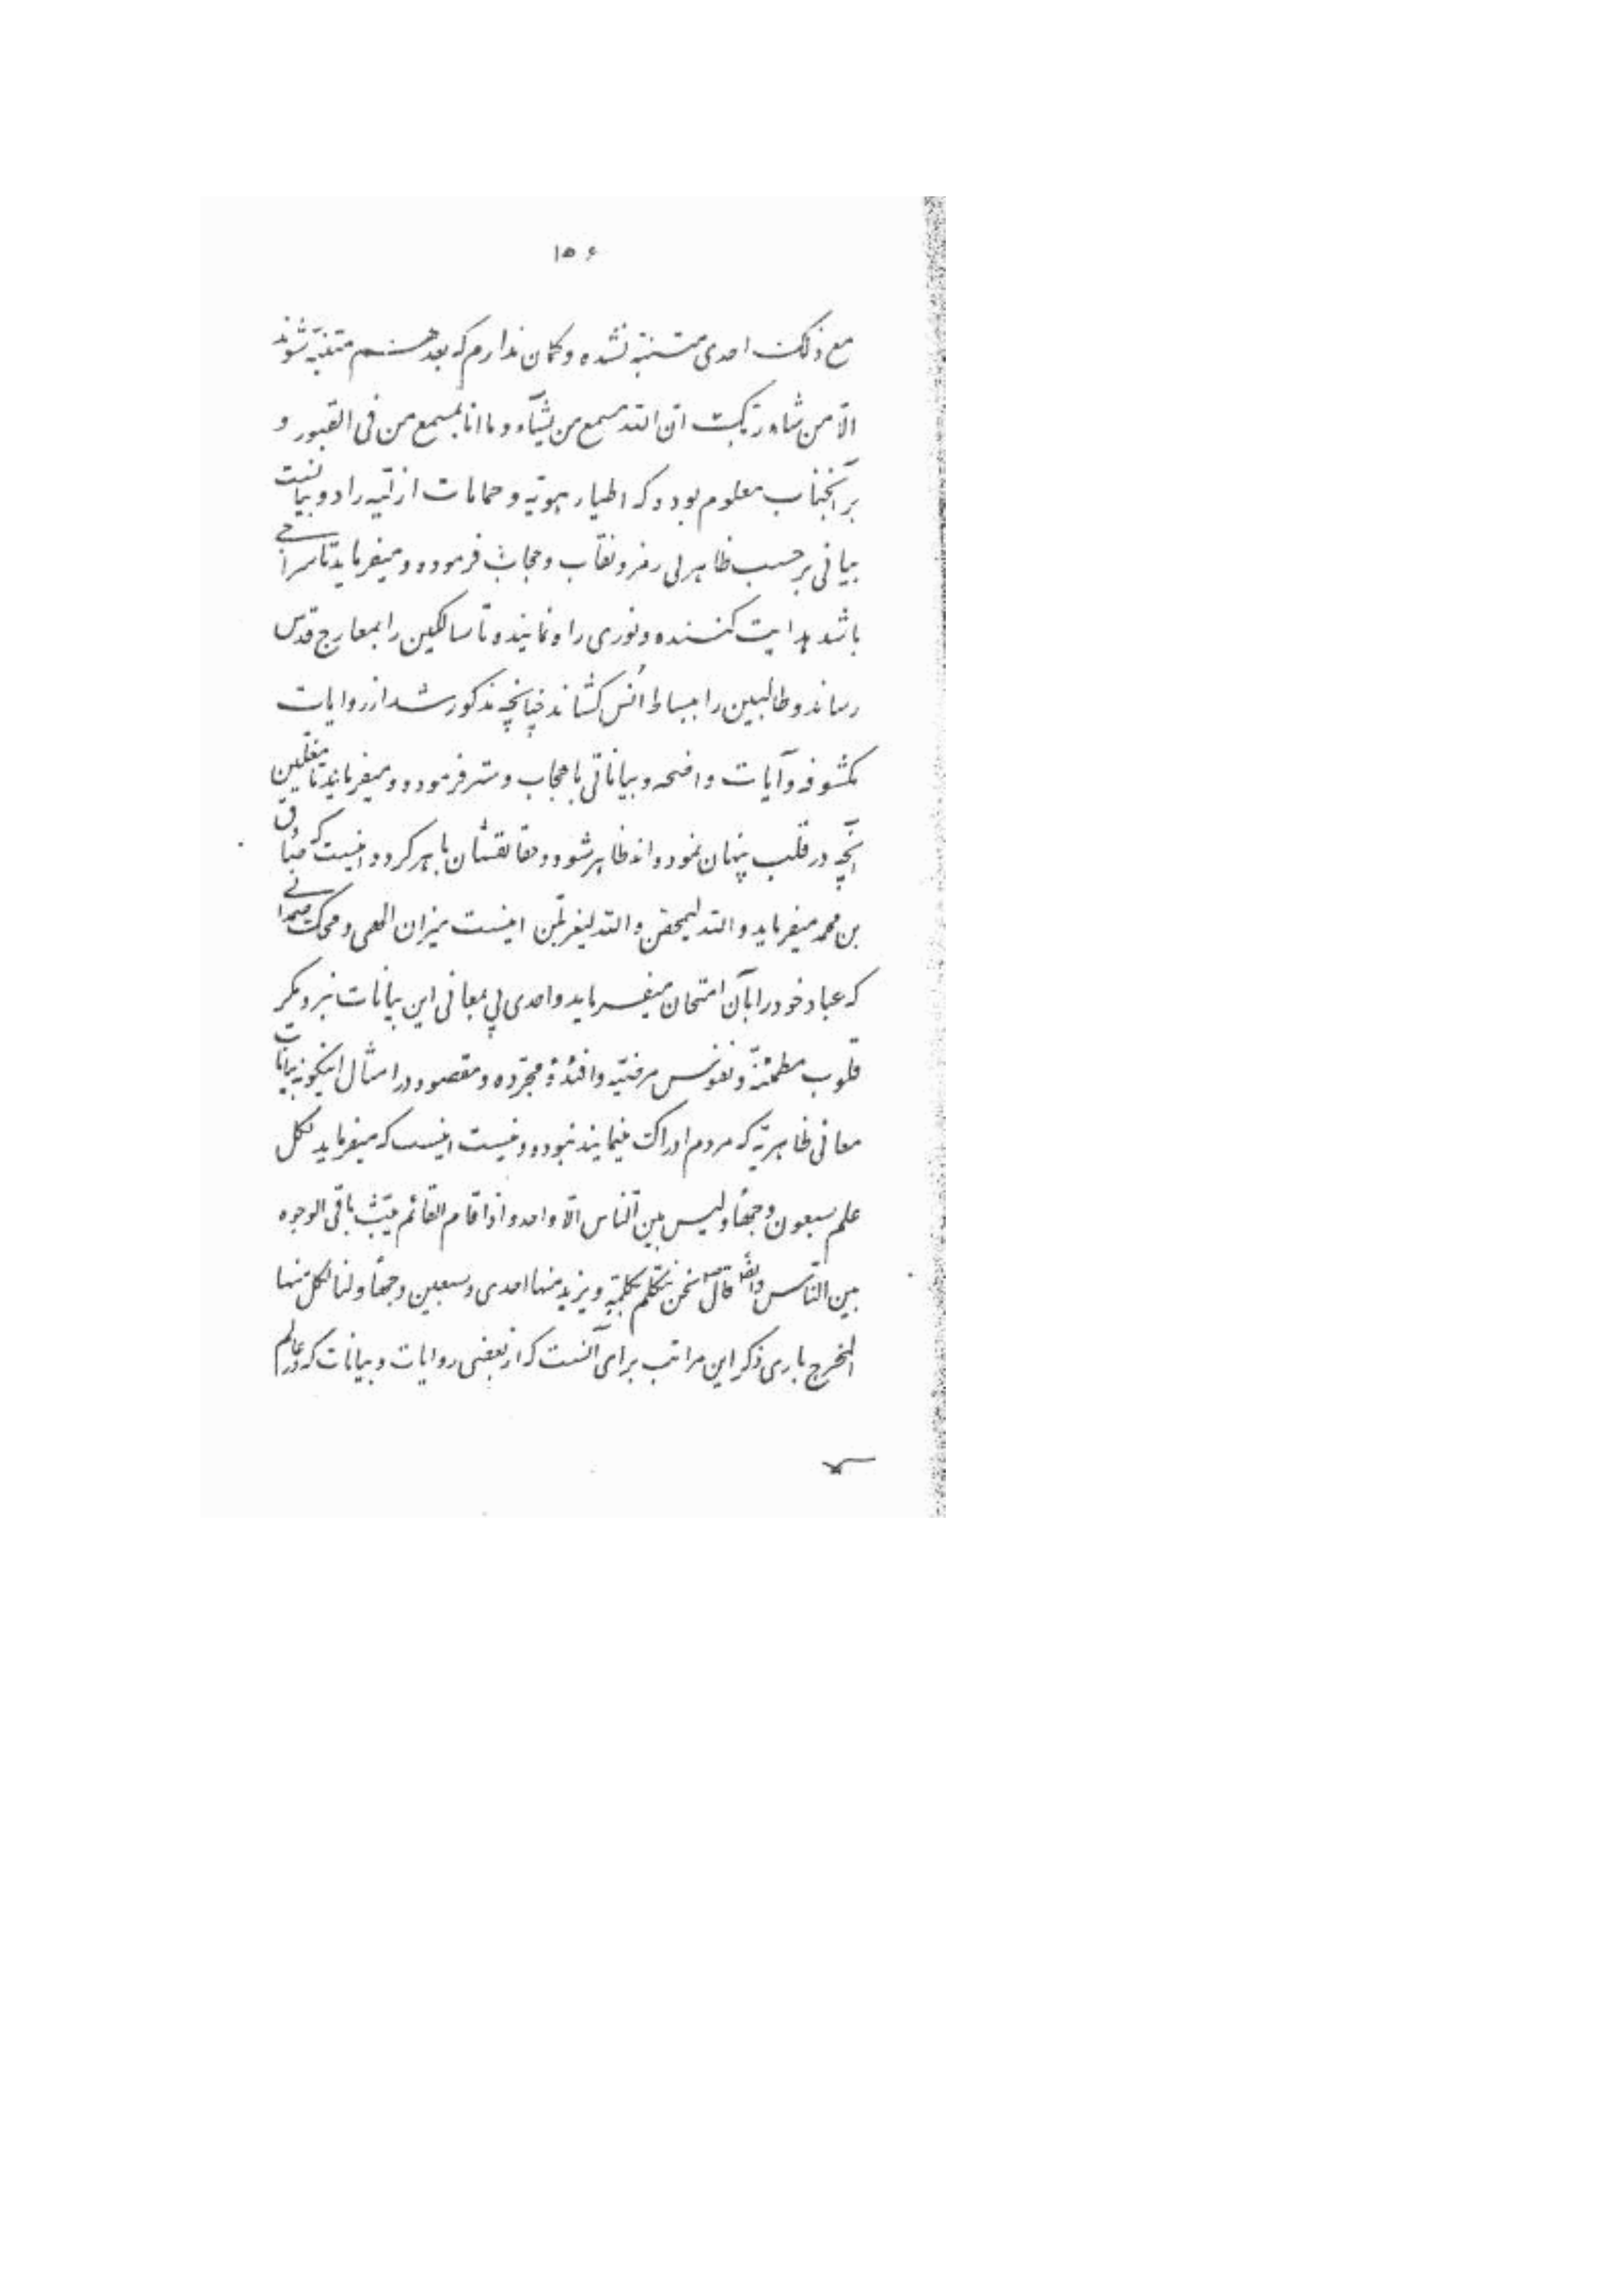 ۱۵۶
مع ذلک احدی متنبّه نشده و گمان ندارم که بعد هم متنبّه شوند
الّا من شاء ربّک انّ اللّه یسمع من یشآء و ما انا بمسمع من فی القبور و
بر آنجناب معلوم بوده که اطیار هویّه و حمامات ازلیّه را دو بیانست
بیانی بر حسب ظاهر بی رمز و نقاب و حجاب فرموده و میفرمایند تا سراجی
باشد هدایت کننده و نوری راه نماینده و تا سالکین را بمعارج قدس
رساند و طالبین را ببساط انُس کشاند چنانچه مذکور شد از روایات
مکشوفه و آیات واضحه و بیاناتی با حجاب و ستر فرموده و میفرمایند تا مغلّین
آنچه در قلب پنهان نموده‌اند ظاهر شود و حقائقشان باهر گردد اینست که صادق
بن محمد میفرماید و اللّه لیمحصن و اللّه لیغربلن اینست میزان الهی و محک صمدانی
که عباد خود را بآن امتحان میفرماید و احدی پی بمعانی این بیانات نبرد مگر
قلوب مطمئنّه و نفوس مرضیّه و افئدهٔ مجرّده و مقصود در امثال اینگونه بیانات
معانی ظاهریّه که مردم ادراک مینمایند نبوده و نیست اینست که میفرماید لکل
علم سبعون وجهاً و لیس بین النّاس الّا واحد و اذا قام القائم یبثّ باقی الوجوه
بین النّاس و ایضاً قال نحن نتکلّم بکلمة و یرید منها احدی و سبعین وجهاً و لنا لکلّ منها
المخرج باری ذکر این مراتب برای آنست که از بعضی روایات و بیانات که در عالم